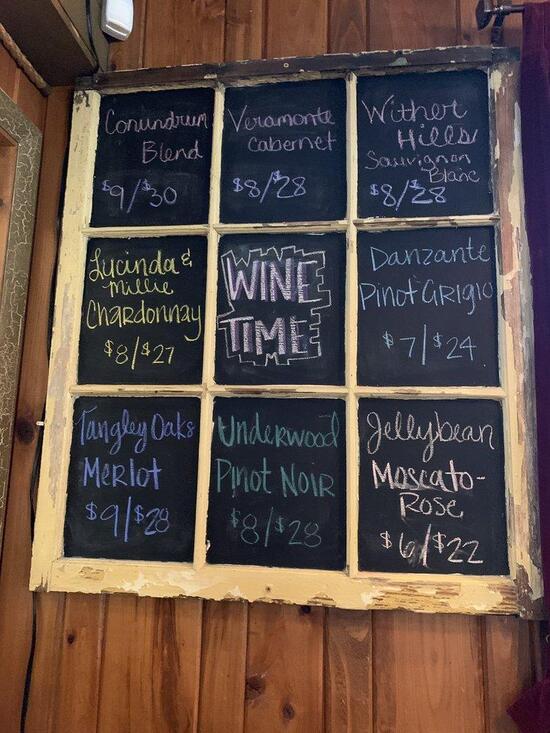 Conundrum
Blend
$9/$30
Veramonte
Cabernet
$8/$28
Wither
Hills
Sauvignon
Blanc
$8/$28
Lucinda &
Millie
Chardonnay
$8/$27
WINE
TIME
Danzante
Pinot Grigio
$7/$24
Tangley Oaks
Merlot
$9/$28
Underwood
Pinot Noir
$8/$28
Jellybean
Moscato-
Rose
$6/$22